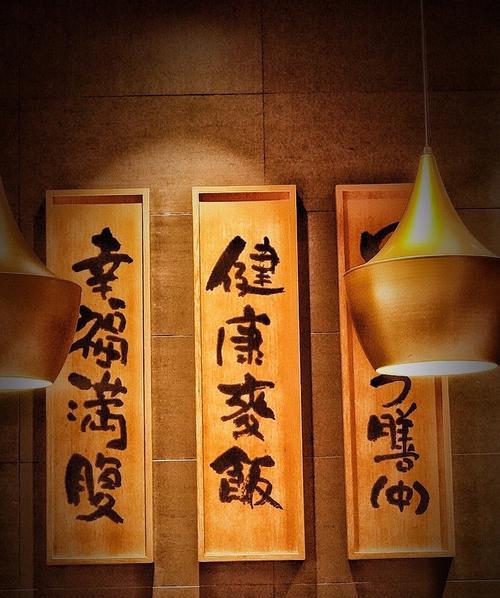 つ膳(中)
健康麥飯
幸福満腹